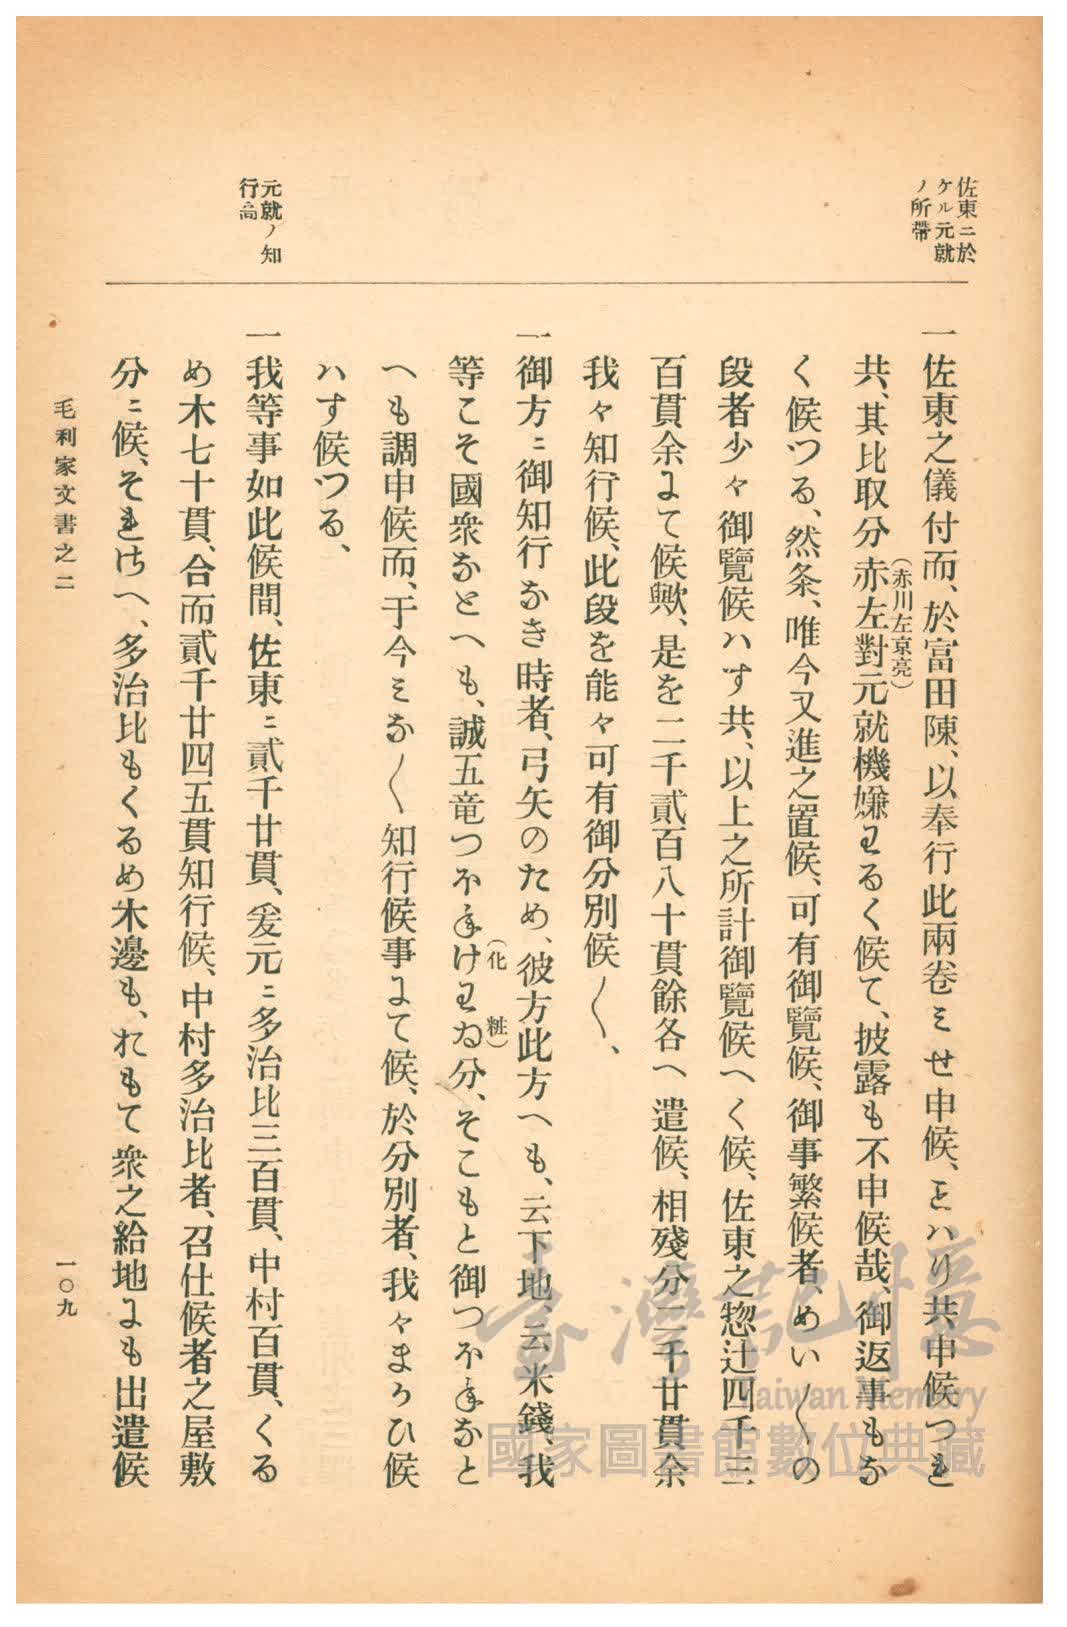 佐東ニ於
ケル元就
ノ所帶
一佐東之儀付而、於富田陳、以奉行此兩卷ミせ申候、とハり共申候つれ
共、其比取分赤左對元就機嫌わるく候て、披露も不申候哉、御返事もな
(赤川左京亮)
く候つる、然条、唯今又進之置候、可有御覽候、御事繁候者、めい〱の
段者少々御覽候ハす共、以上之所計御覽候へく候、佐東之惣辻四千三
百貫余にて候歟、是を二千貳百八十貫餘各へ遣候、相殘分二千廿貫余
我々知行候、此段を能々可有御分別候〱、
一御方ニ御知行なき時者、弓矢のため、彼方此方へも、云下地、云米錢、我
等こそ國衆なとへも、誠五竜つほねけわゐ分、そこもと御つほねなと
(化粧)
へも調申候而、于今ミな〱知行候事にて候、於分別者、我々まかひ候
ハす候つる、
元就ノ知
行高
一我等事如此候間、佐東ニ貳千廿貫、爰元ニ多治比三百貫、中村百貫、くる
め木七十貫、合而貳千廿四五貫知行候、中村多治比者、召仕候者之屋敷
分ニ候、それさへ、多治比もくるめ木邊も、おもて衆之給地にも出遣候
毛利家文書之二
一〇九
臺灣記憶
Taiwan Memory
國家圖書館數位典藏